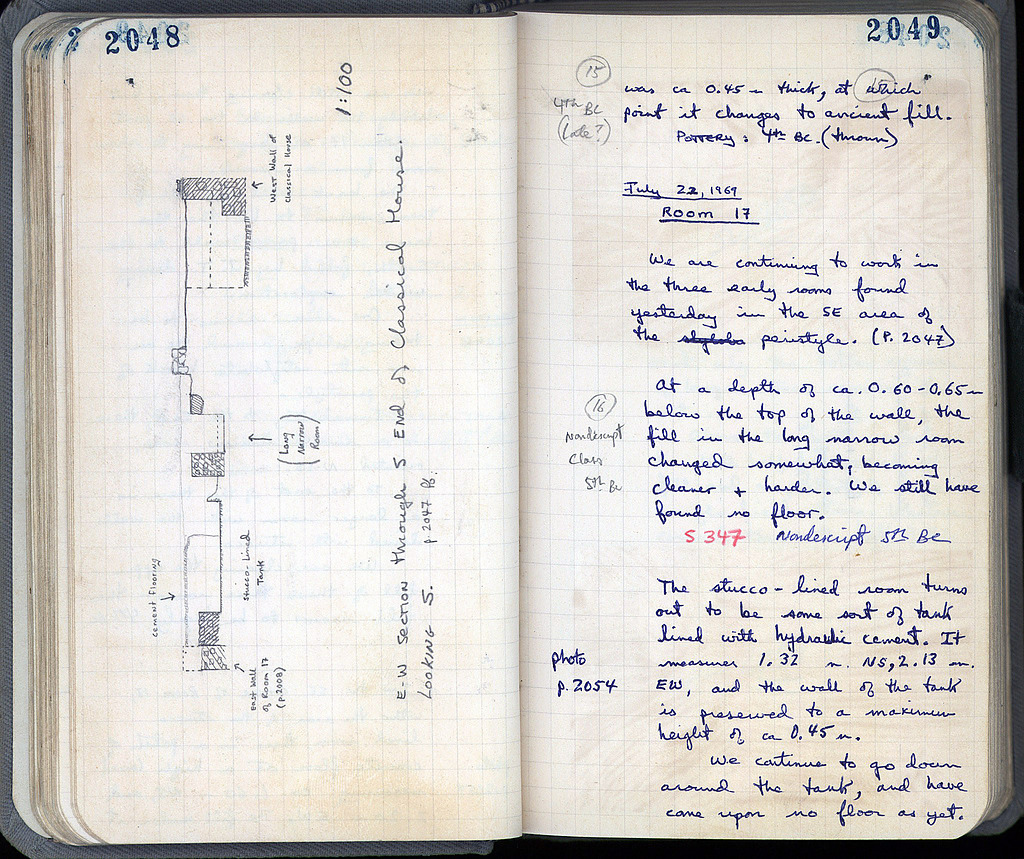 2048
1:100
West Wall of
Classical House
(Long
Narrow
Room)
cement flooring
Stucco-Lined
Tank
East Wall
of Room 17
(p.2008)
E-W Section through S End of Classical House.
Looking S. p 2047 PB.
2049
15
4th BC
(Late?)
was ca 0.45 m thick, at which
15
point it changes to ancient fill.
Pottery: 4th BC. (thrown)
July 22, 1969
Room 17
We are continuing to work in
the three early rooms found
yesterday in the SE area of
the peristyle. (P. 2047)
16
Nondescript
Class
5th BC
At a depth of ca. 0.60-0.65 m
below the top of the wall, the
fill in the long narrow room
changed somewhat, becoming
cleaner + harder. We still have
found no floor.
S 347 Nondescript 5th BC
The stucco-lined room turns
out to be some sort of tank
lined with hydraulic cement. It
measures 1.32 m. NS, 2.13 m.
EW, and the wall of the tank
is preserved to a maximum
height of ca 0.45 m.
photo
p.2054
We continue to go down
around the tank, and have
come upon no floor as yet.